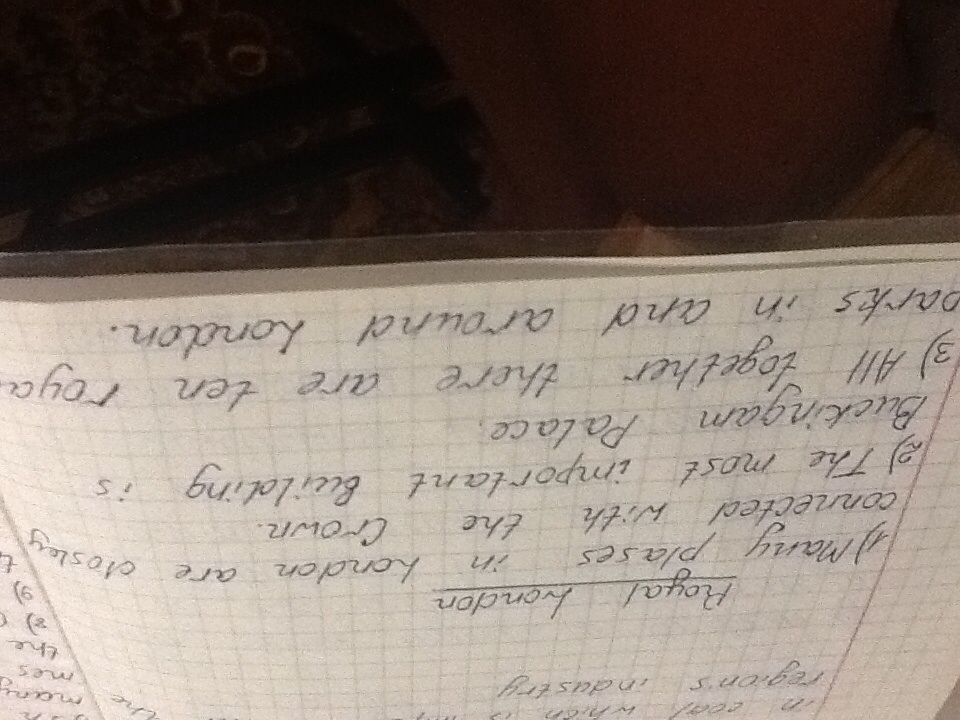 in coal which is
region's industry
Royal London
1) Many plases in London are closley
connected with the Crown.
2) The most important Building is
Buckingam Palace.
3) All together there are ten roya
parks in and around London.
the many
mes
the
8)
9)